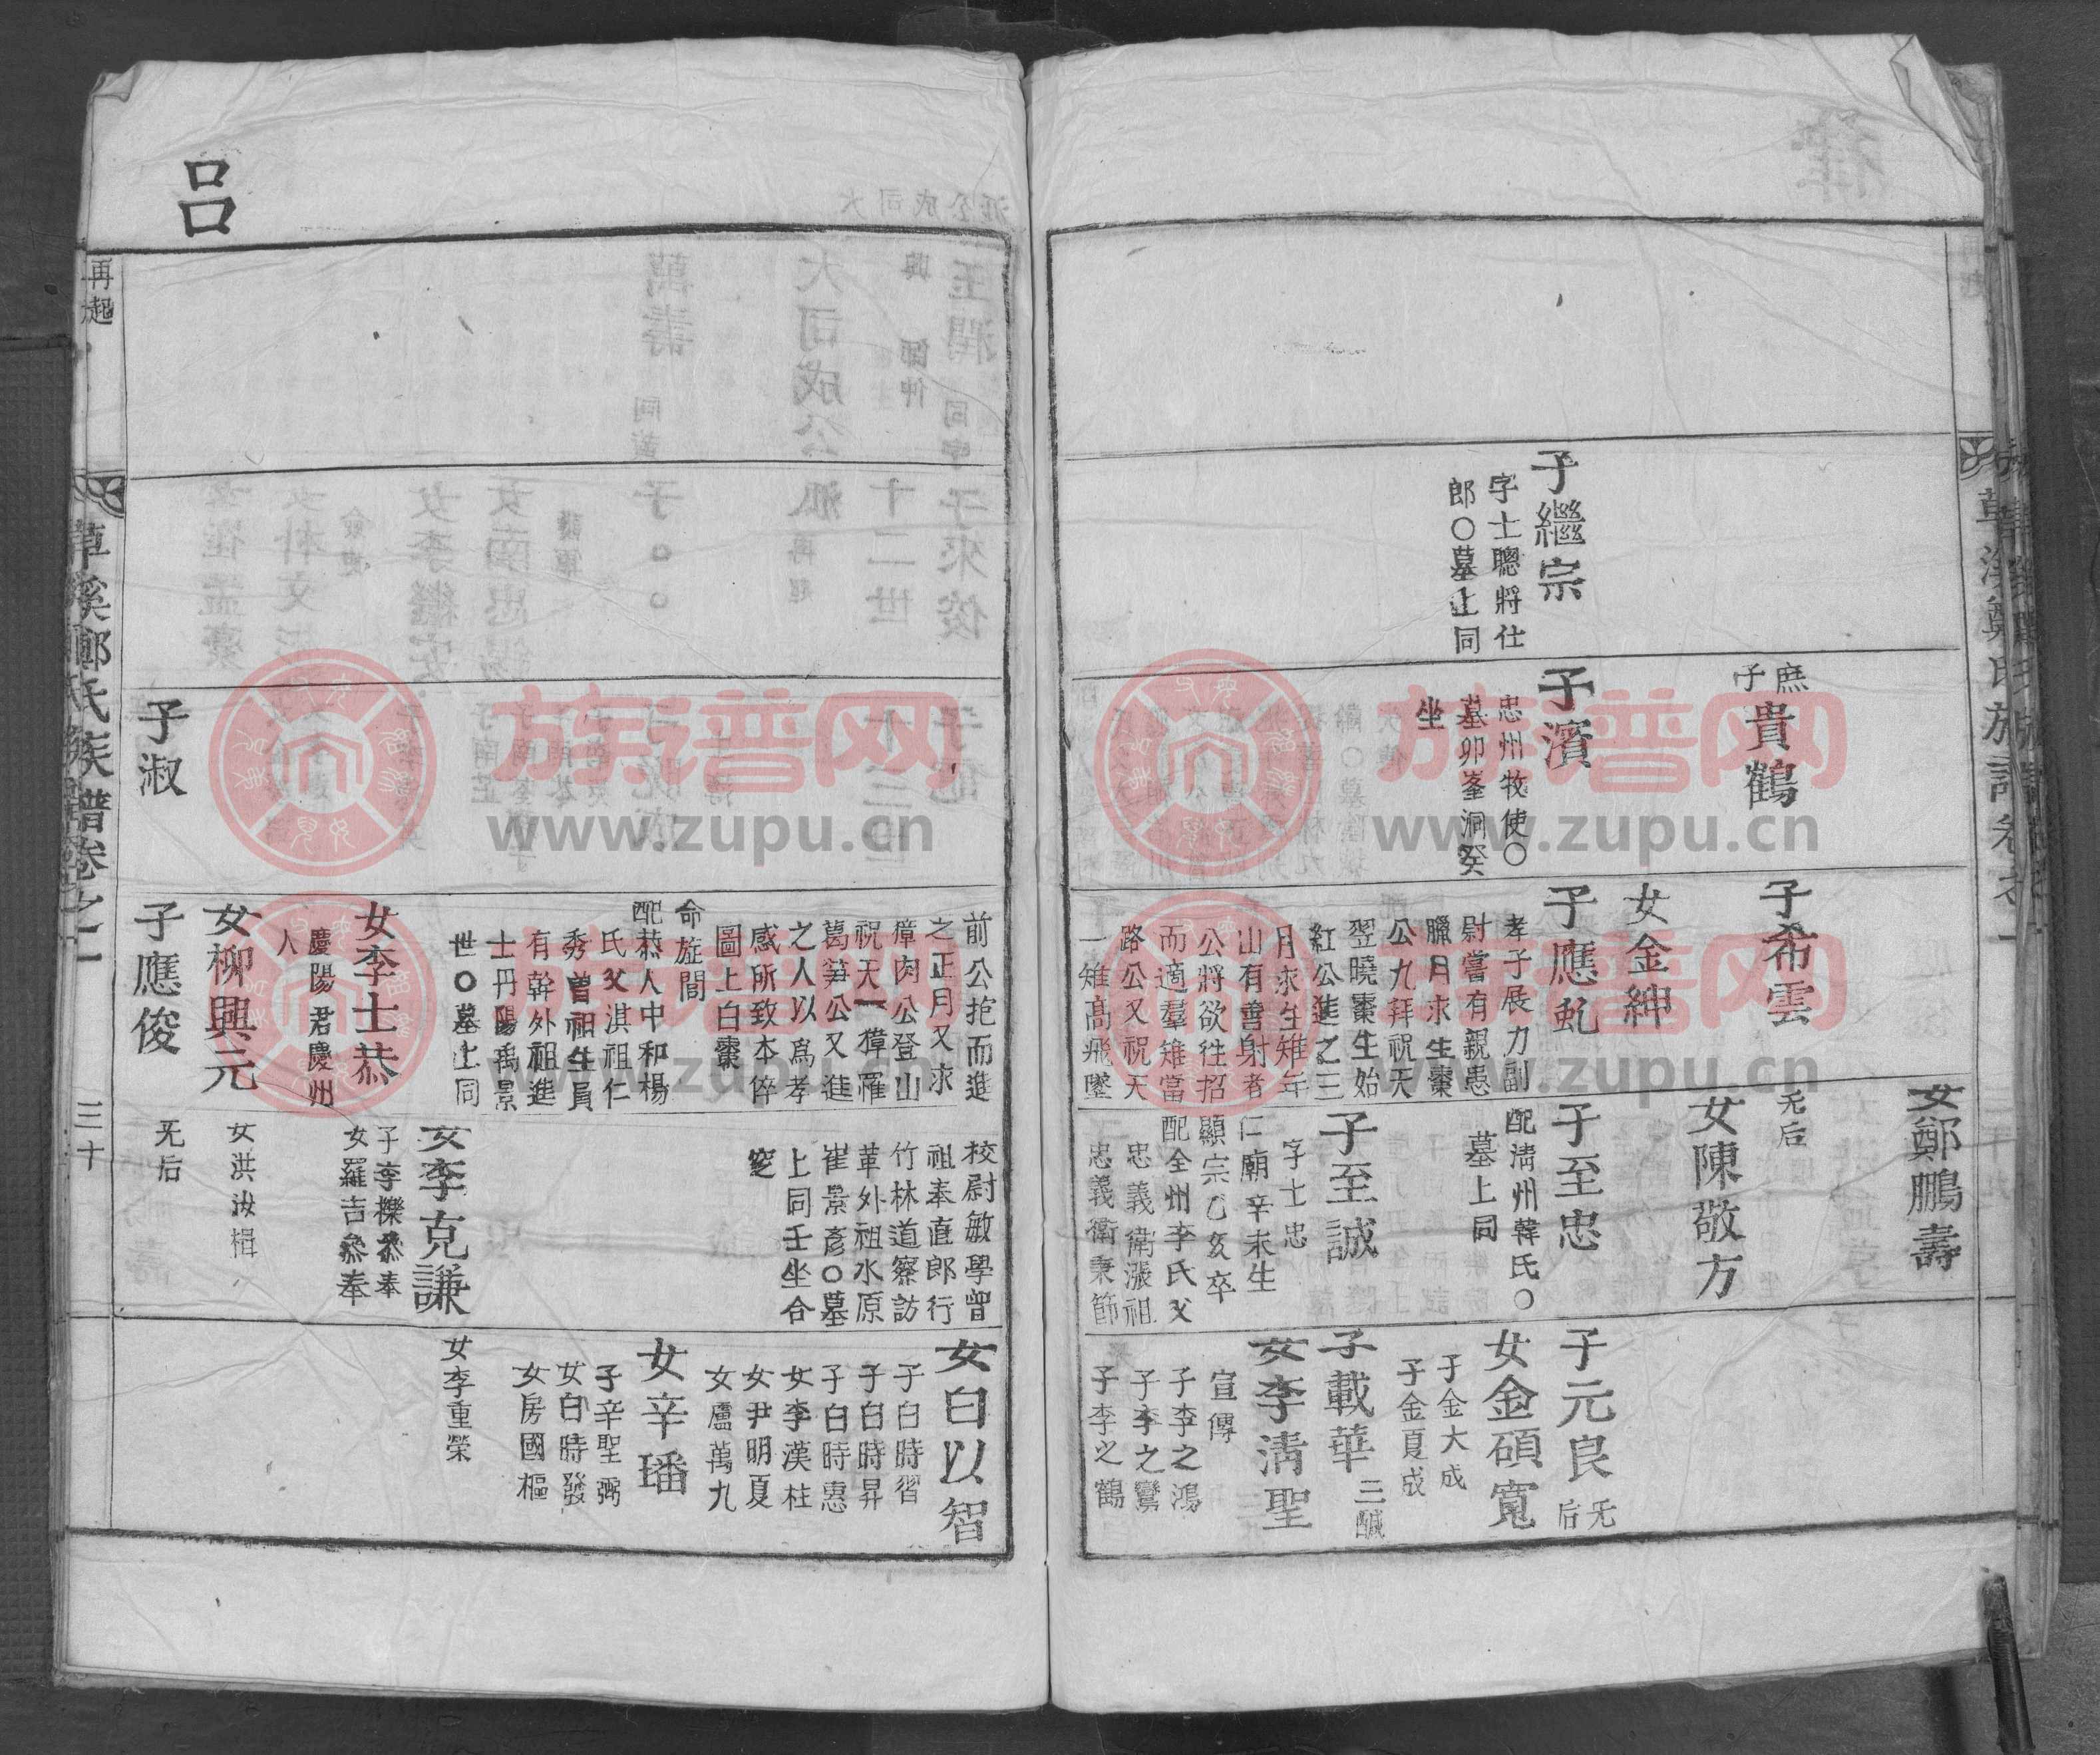 子繼宗
字士聰將仕
郎○墓上同
庶
子
貴鶴
子濱
忠州牧使○
墓卯峯洞癸
坐
子希雲
女金紳
子應虬
孝子展力副
尉嘗有親患
臘月求生棗
公九拜祝天
翌曉棗生始
紅公進之三
月求生雉年
山有善射者
公將欲往招
而適羣雉當
路公又祝天
一雉高飛墜
女鄭鵬壽
无后
女陳敬方
子至忠
配淸州韓氏○
墓上同
子至誠
字士忠
仁廟辛未生
顯宗乙亥卒
配全州李氏父
忠義衛漲祖
忠義衛秉節
子元良
无
后
女金碩寬
子金大成
子金夏成
子載華
三馘
女李淸聖
宣傳
子李之鴻
子李之鸞
子李之鶴
呂
再起
草溪鄭氏族譜卷之一
三十
子淑
前公拒而進
之正月又求
獐肉公登山
祝天一獐罹
葛笋公又進
之人以爲孝
感所致本倅
圖上白棗
命旋閭
配恭人中和楊
氏父淇祖仁
秀曽祖生員
有幹外祖進
士丹陽禹景
世○墓上同
女李士恭
慶陽君慶州
人
女柳興元
子應俊
校尉敏學曾
祖奉直郎行
竹林道察訪
革外祖水原
崔景彥○墓
上同壬坐合
窆
女李克謙
子李櫟叅奉
女羅吉叅奉
女洪汝楫
无后
女白以智
子白時習
子白時昇
子白時惠
女李漢柱
女尹明夏
女盧萬九
女辛璠
子辛聖弼
女白時發
女房國樞
女李重榮
族谱网
www.zupu.cn
族谱网
www.zupu.cn
族谱网
www.zupu.cn
族谱网
www.zupu.cn